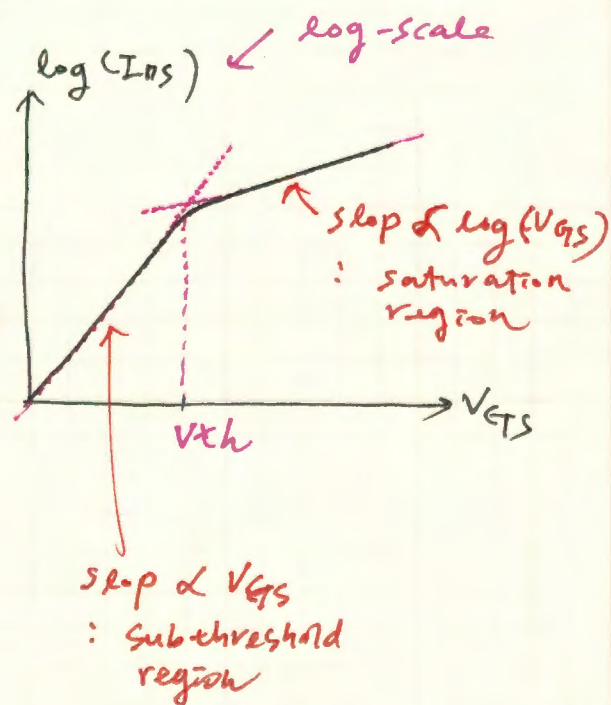 log-scale
log(IDS)
slop ∝ log(VGS)
: saturation
region
VGS
Vth
slop ∝ VGS
: subthreshold
region